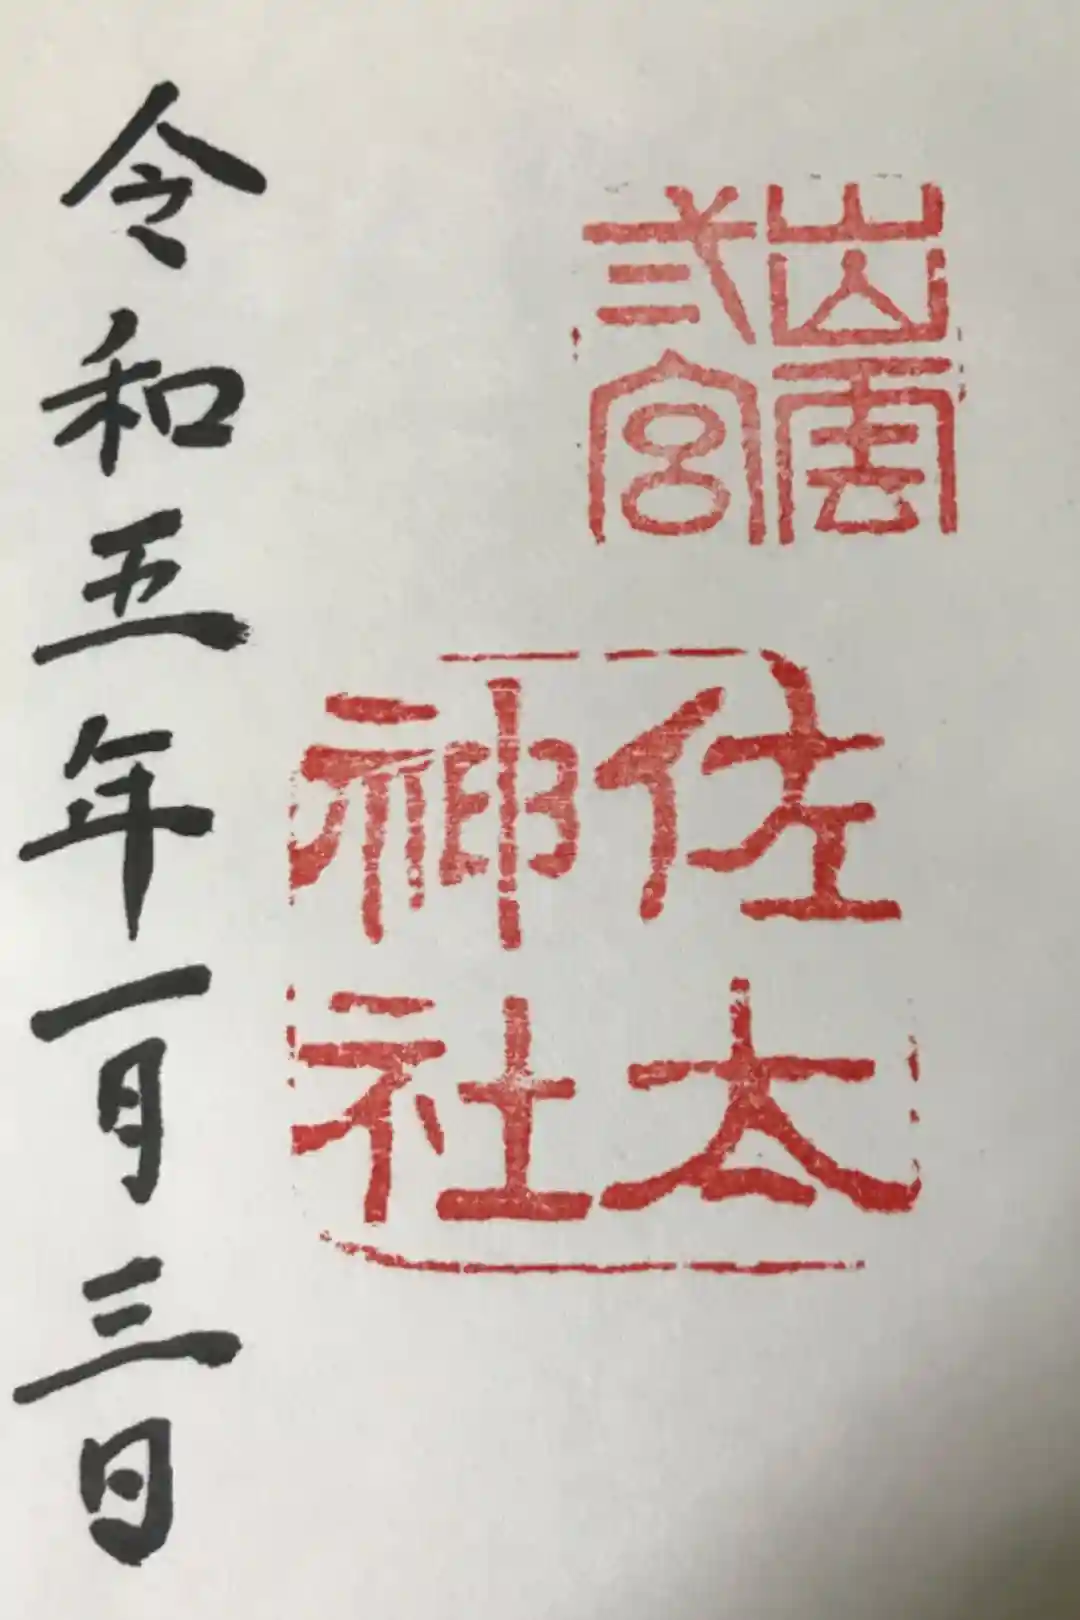 出雲
弍宮
佐太
神社
令和五年一月三日